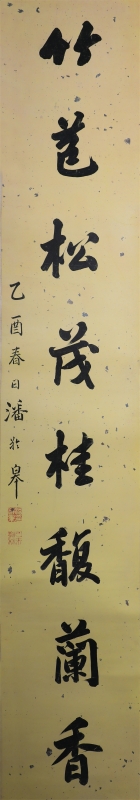 竹苞松茂桂馥蘭香
乙酉春日潘於皋